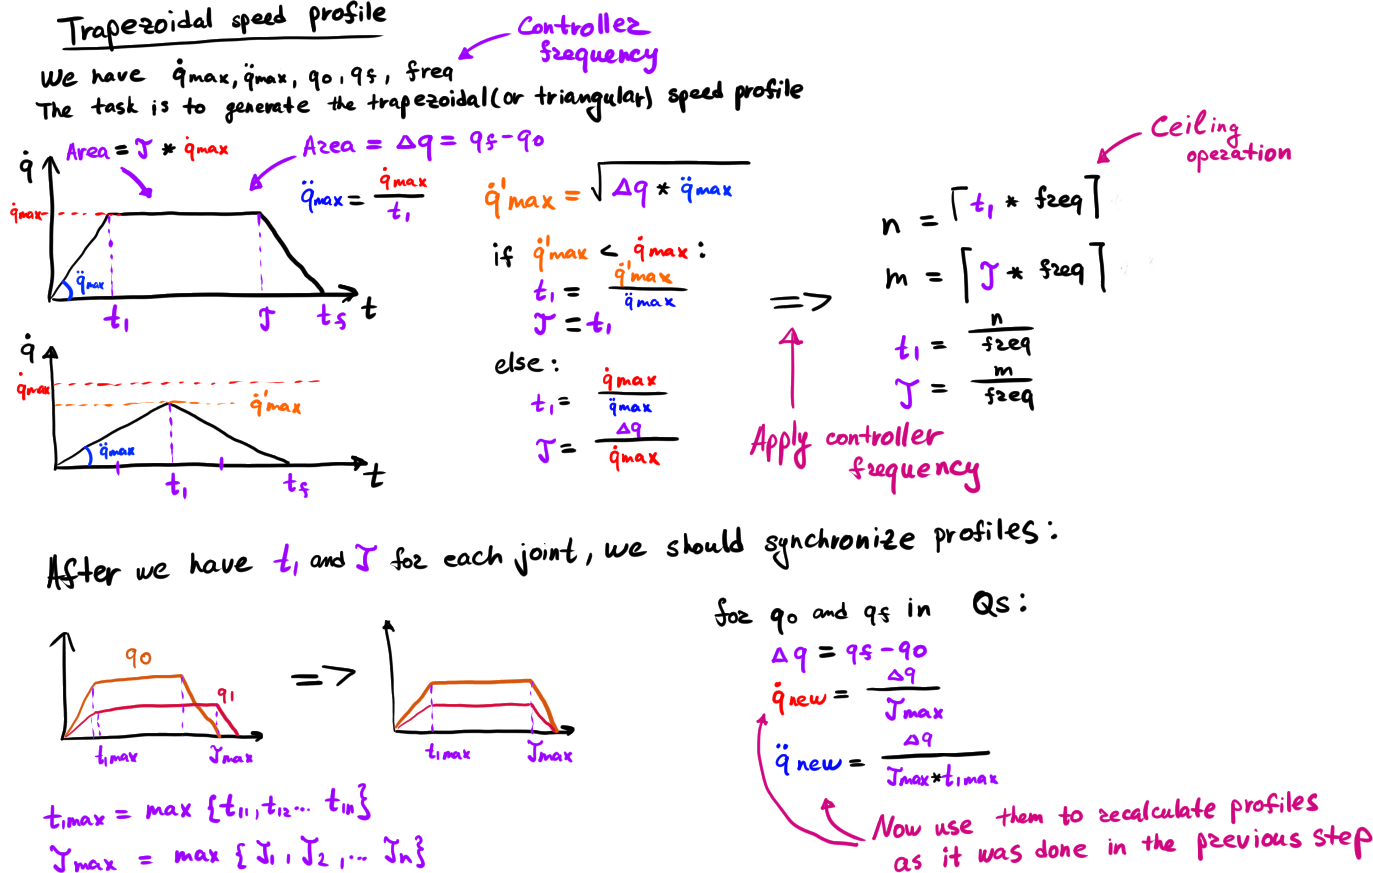 Trapezoidal speed profile
Controller
frequency
We have q̇max, q̈max, q0, qf, freq
The task is to generate the trapezoidal (or triangular) speed profile
Area = T * q̇max
Area = Δq = qf - q0
q̇
q̇max
q̈max = q̇max / t1
q̈max
t1
T
tf
t
q̇
q̇max
q̇'max
q̈max
t1
tf
t
q̇'max = √(Δq * q̈max)
if q̇'max < q̇max:
t1 = q̇'max / q̈max
T = t1
else:
t1 = q̇max / q̈max
T = Δq / q̇max
=>
Apply controller
frequency
Ceiling
operation
n = ⌈t1 * freq⌉
m = ⌈T * freq⌉
t1 = n / freq
T = m / freq
After we have t1 and T for each joint, we should synchronize profiles:
q0
q1
t1max
Tmax
=>
t1max
Tmax
t1max = max {t11, t12... t1n}
Tmax = max {T1, T2, ... Tn}
for q0 and qf in Qs:
Δq = qf - q0
q̇new = Δq / Tmax
q̈new = Δq / Tmax*t1max
Now use them to recalculate profiles
as it was done in the previous step